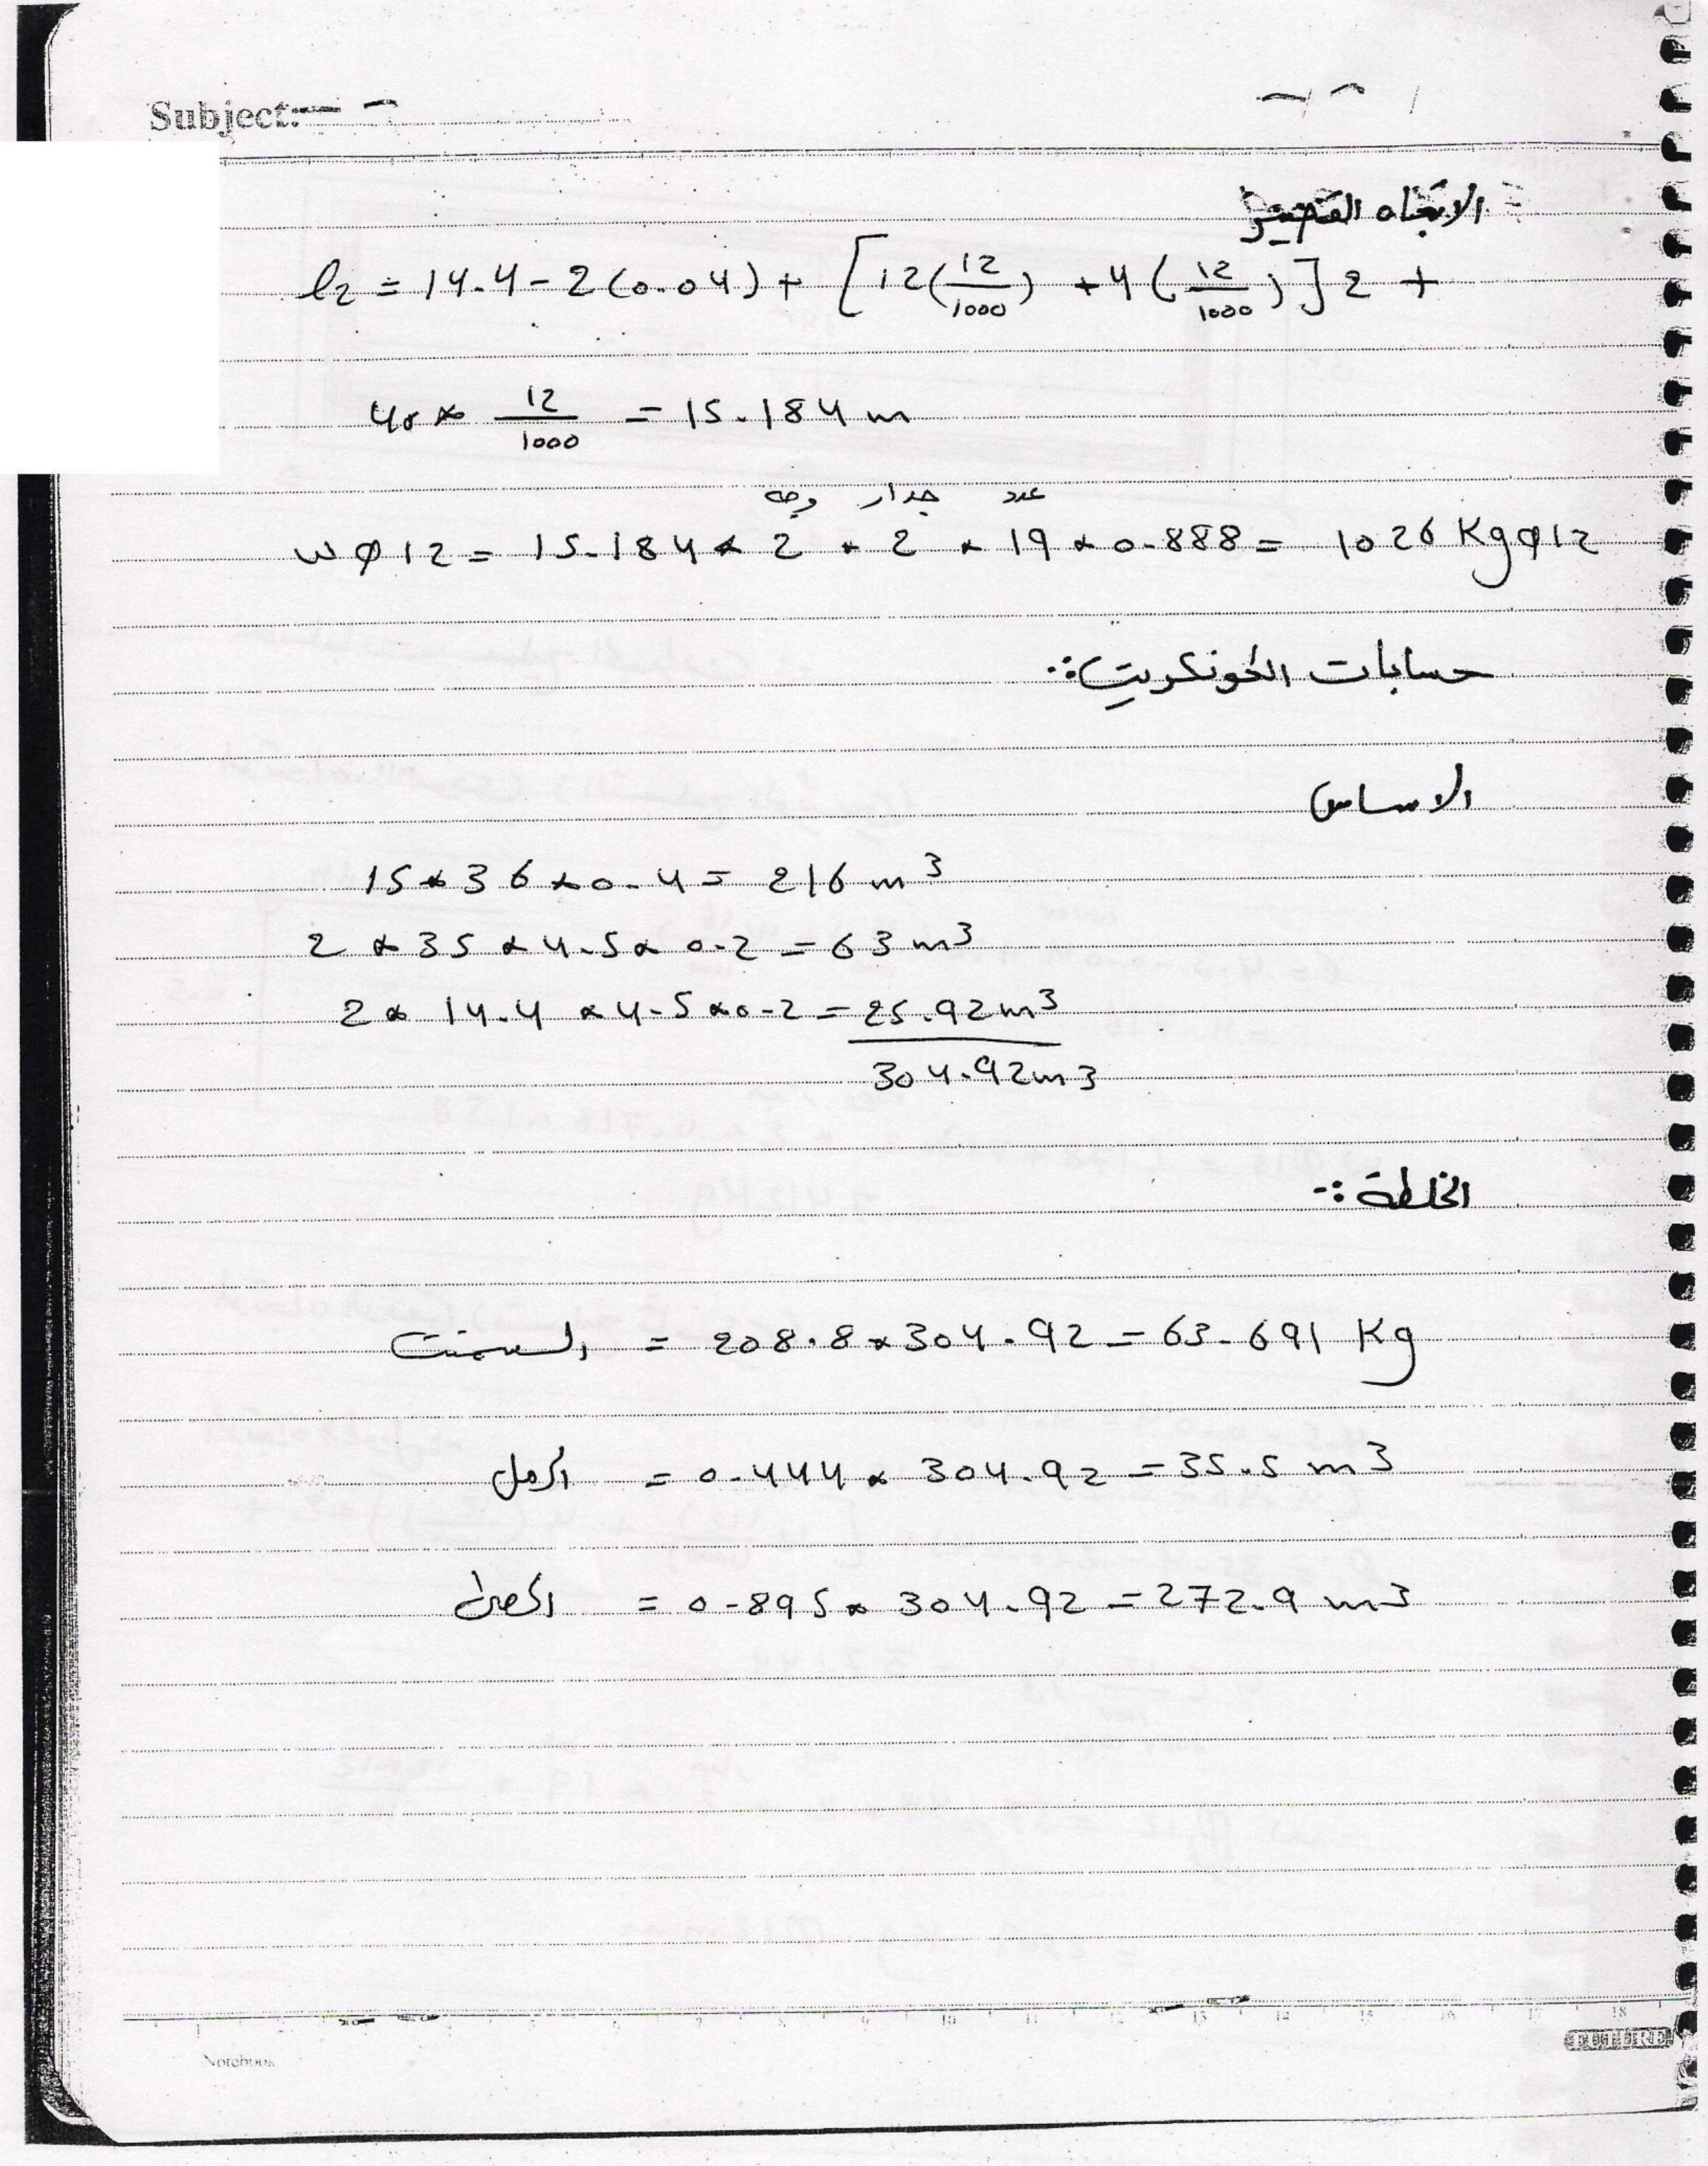 Subject:
الاتجاه القصير
l2 = 14.4 - 2(0.04) + [12(12/1000) + 4(12/1000)]2 +
40 * 12/1000 = 15.184 m
عدد جدار وجه
wø12 = 15.184 * 2 * 2 * 19 * 0.888 = 1026 Kgø12
حسابات الكونكريت :-
الاساس
15 * 36 * 0.4 = 216 m3
2 * 35 * 4.5 * 0.2 = 63 m3
2 * 14.4 * 4.5 * 0.2 = 25.92 m3
304.92 m3
الخلطة :-
السمنت = 208.8 * 304.92 = 63.691 Kg
الرمل = 0.444 * 304.92 = 35.5 m3
الحصى = 0.895 * 304.92 = 272.9 m3
Notebook
FUTURE